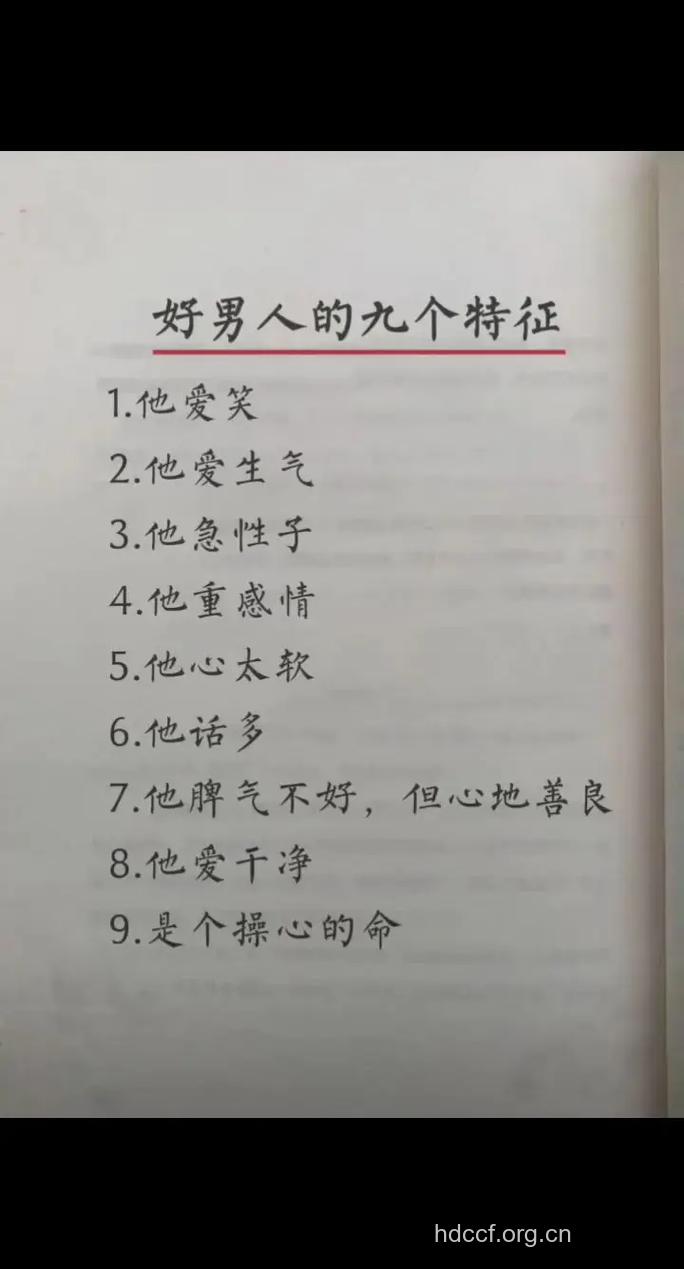 好男人的九个特征
1.他爱笑
2.他爱生气
3.他急性子
4.他重感情
5.他心太软
6.他话多
7.他脾气不好，但心地善良
8.他爱干净
9.是个操心的命
hdccf.org.cn